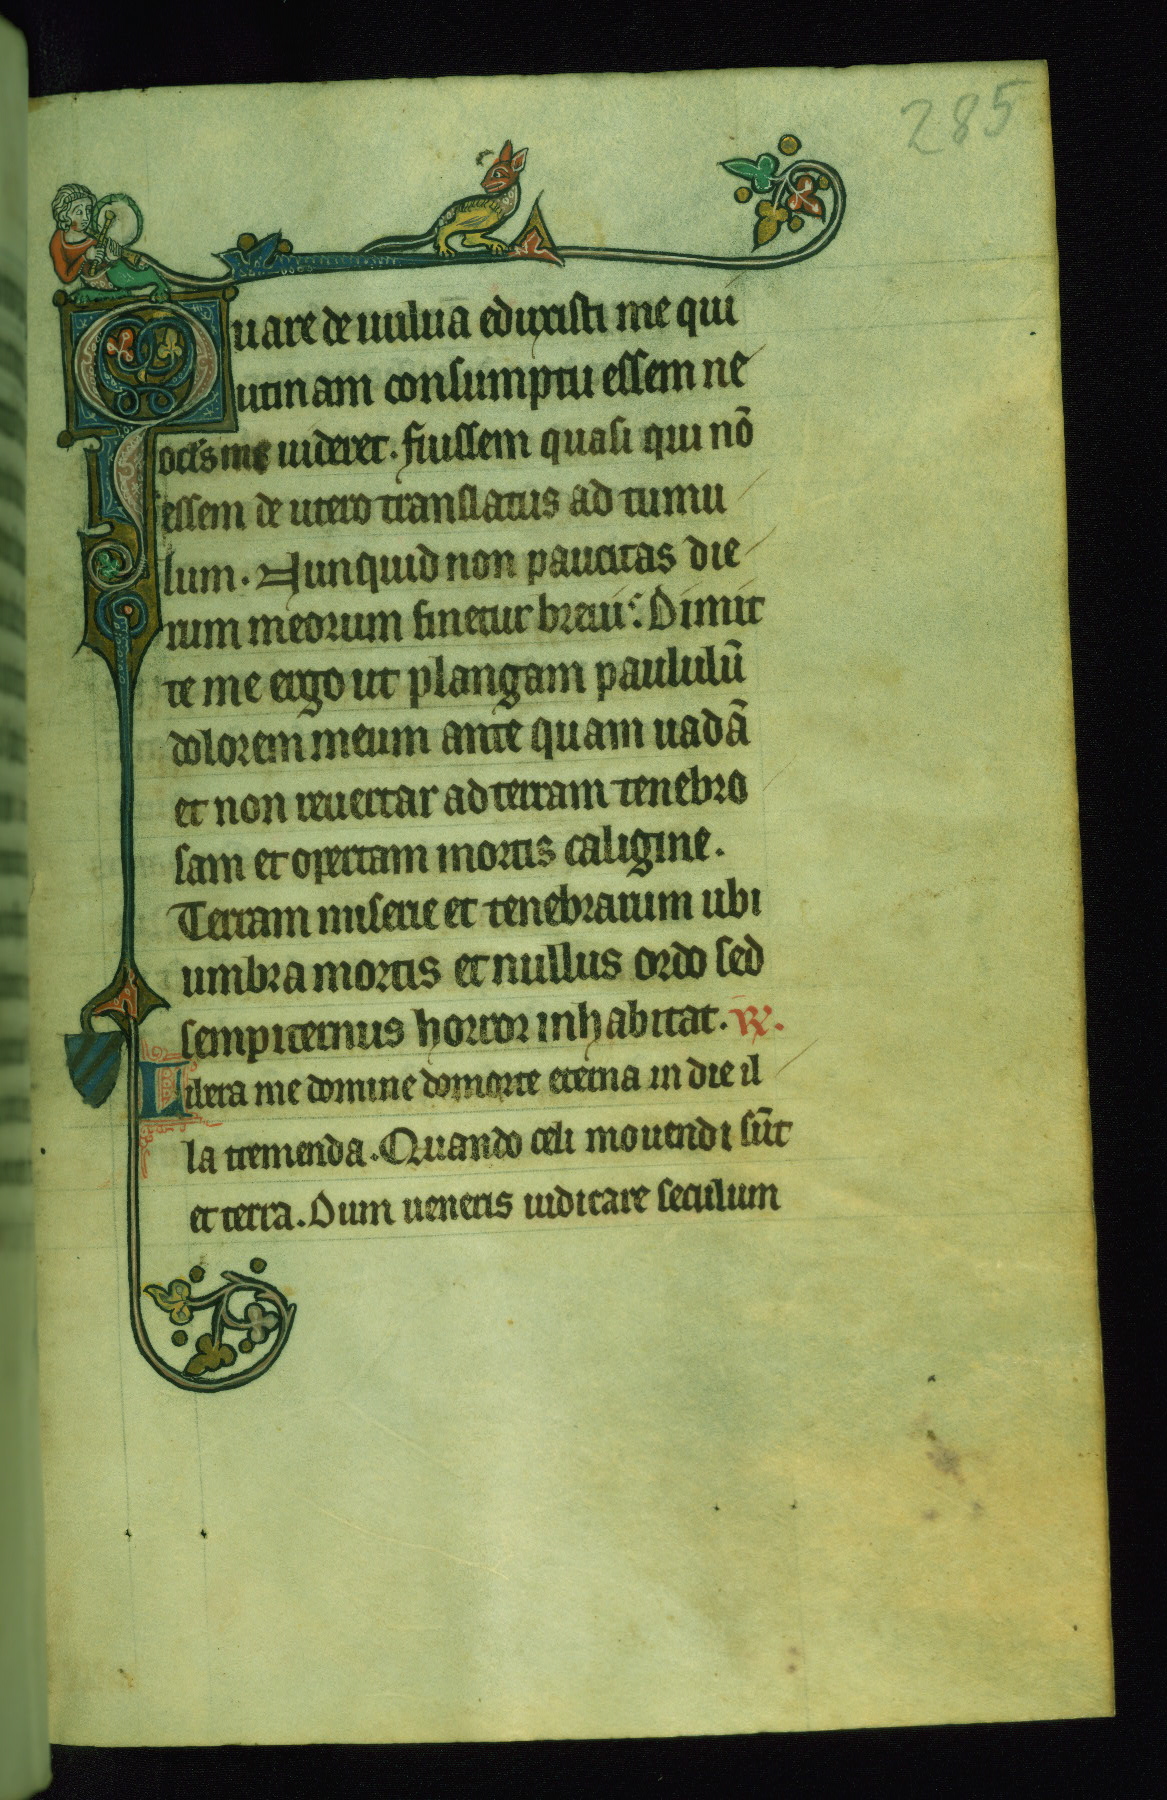 285
Quare de uulua eduxisti me qui
utinam consumptu essem ne
ocl's me uideret. fuissem quasi qui nō
essem de utero translatus ad tumu
lum. Nunquid non paucitas die
rum meorum finetur breui: Dimit
te me ergo ut plangam paululū
dolorem meum ante quam uadā
et non reuertar ad terram tenebro
sam et opertam mortis caligine.
Terram miserie et tenebrarum ubi
umbra mortis et nullus ordo sed
sempiternus horror inhabitat. R̄.
Libera me domine de morte eterna in die il
la tremenda. Quando celi mouendi sūt
et terra. Dum ueneris iudicare seculum